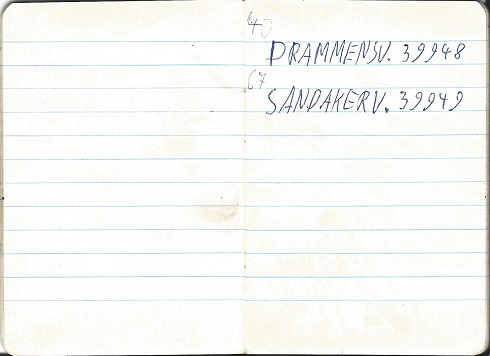 40
DRAMMENSV. 39948
67
SANDAKERV. 39949